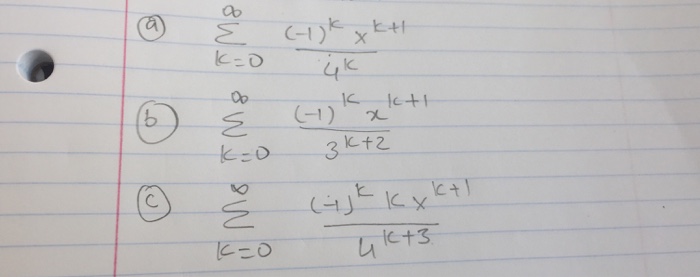 (a) ∑_{k=0}^{∞} \frac{(-1)^k x^{k+1}}{4^k}
(b) ∑_{k=0}^{∞} \frac{(-1)^k x^{k+1}}{3^{k+2}}
(c) ∑_{k=0}^{∞} \frac{(-1)^k k x^{k+1}}{4^{k+3}}